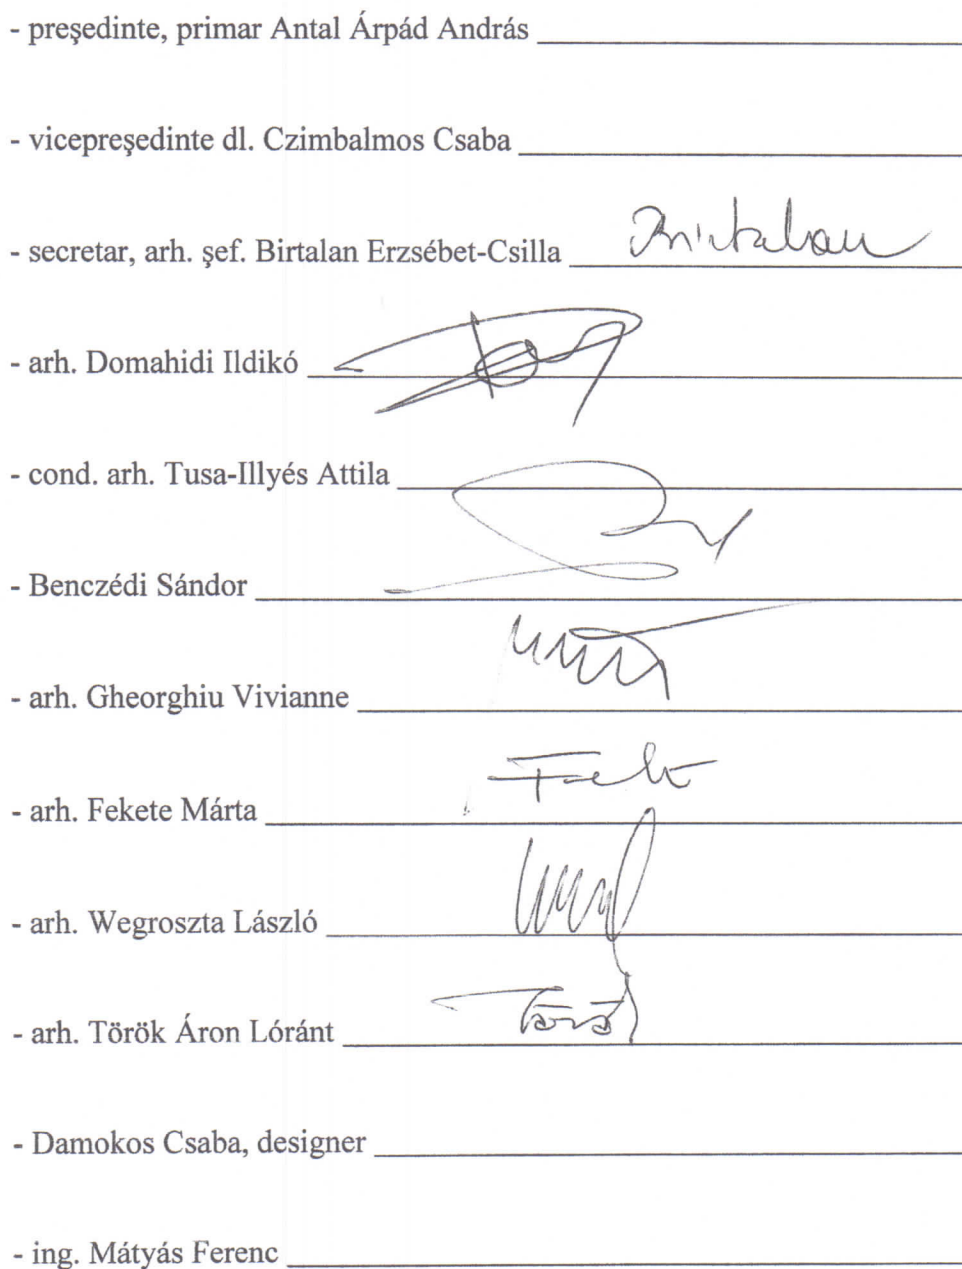 - președinte, primar Antal Árpád András
- vicepreședinte dl. Czimbalmos Csaba
- secretar, arh. șef. Birtalan Erzsébet-Csilla Birtalan
- arh. Domahidi Ildikó
- cond. arh. Tusa-Illyés Attila
- Benczédi Sándor
- arh. Gheorghiu Vivianne
- arh. Fekete Márta
- arh. Wegroszta László
- arh. Török Áron Lóránt Török
- Damokos Csaba, designer
- ing. Mátyás Ferenc